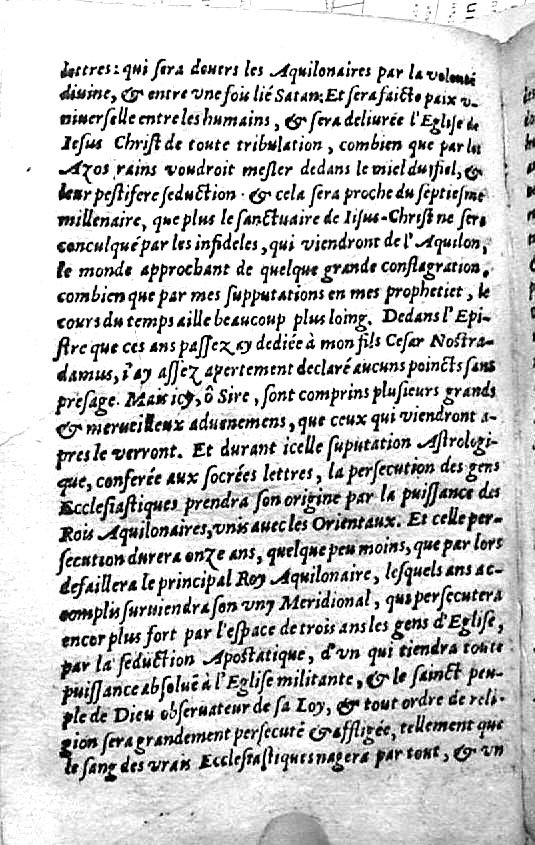 lettres: qui sera deuers les Aquilonaires par la volonté
diuine, & entre vne fois lié Satan. Et sera faicte paix v-
niuerselle entre les humains, & sera deliurée l'Eglise de
Iesus Christ de toute tribulation, combien que par les
Azos rains voudroit mesler dedans le miel du fiel, &
leur pestifere seduction. & cela sera proche du septiesme
millenaire, que plus le sanctuaire de Iisus-Christ ne sera
conculqué par les infideles, qui viendront de l'Aquilon,
le monde approchant de quelque grande conflagration,
combien que par mes supputations en mes propheties, le
cours du temps aille beaucoup plus loing. Dedans l'Epi-
stre que ces ans passez ay dediée à mon fils Cesar Nostra-
damus, i'ay assez apertement declaré aucuns poincts sans
presage. Mais icy, ô Sire, sont comprins plusieurs grands
& merueilleux aduenemens, que ceux qui viendront a-
pres le verront. Et durant icelle suputation Astrologi-
que, conferée aux socrées lettres, la persecution des gens
Ecclesiastiques prendra son origine par la puissance des
Rois Aquilonaires, vnis auec les Orientaux. Et celle per-
secution durera onze ans, quelque peu moins, que par lors
defaillera le principal Roy Aquilonaire, lesquels ans ac-
complis suruiendra son vny Meridional, qui persecutera
encor plus fort par l'espace de trois ans les gens d'Eglise,
par la seduction Apostatique, d'vn qui tiendra toute
puissance absoluë à l'Eglise militante, & le sainct peu-
ple de Dieu obseruateur de sa Loy, & tout ordre de reli-
gion sera grandement persecuté & affligée, tellement que
le sang des vrais Ecclesiastiques nagera par tout, & vn